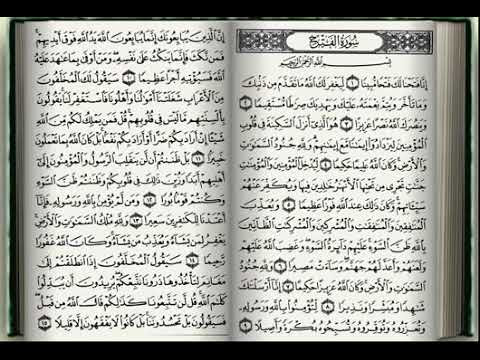 سُورَةُ الْفَتْحِ
بِسْمِ اللَّهِ الرَّحْمَٰنِ الرَّحِيمِ
إِنَّا فَتَحْنَا لَكَ فَتْحًا مُّبِينًا ١ لِّيَغْفِرَ لَكَ اللَّهُ مَا تَقَدَّمَ مِن ذَنبِكَ
وَمَا تَأَخَّرَ وَيُتِمَّ نِعْمَتَهُ عَلَيْكَ وَيَهْدِيَكَ صِرَاطًا مُّسْتَقِيمًا ٢
وَيَنصُرَكَ اللَّهُ نَصْرًا عَزِيزًا ٣ هُوَ الَّذِي أَنزَلَ السَّكِينَةَ فِي قُلُوبِ
الْمُؤْمِنِينَ لِيَزْدَادُوا إِيمَانًا مَّعَ إِيمَانِهِمْ وَلِلَّهِ جُنُودُ السَّمَاوَاتِ
وَالْأَرْضِ وَكَانَ اللَّهُ عَلِيمًا حَكِيمًا ٤ لِّيُدْخِلَ الْمُؤْمِنِينَ وَالْمُؤْمِنَاتِ
جَنَّاتٍ تَجْرِي مِن تَحْتِهَا الْأَنْهَارُ خَالِدِينَ فِيهَا وَيُكَفِّرَ عَنْهُمْ
سَيِّئَاتِهِمْ وَكَانَ ذَٰلِكَ عِندَ اللَّهِ فَوْزًا عَظِيمًا ٥ وَيُعَذِّبَ
الْمُنَافِقِينَ وَالْمُنَافِقَاتِ وَالْمُشْرِكِينَ وَالْمُشْرِكَاتِ الظَّانِّينَ
بِاللَّهِ ظَنَّ السَّوْءِ عَلَيْهِمْ دَائِرَةُ السَّوْءِ وَغَضِبَ اللَّهُ عَلَيْهِمْ
وَلَعَنَهُمْ وَأَعَدَّ لَهُمْ جَهَنَّمَ وَسَاءَتْ مَصِيرًا ٦ وَلِلَّهِ جُنُودُ
السَّمَاوَاتِ وَالْأَرْضِ وَكَانَ اللَّهُ عَزِيزًا حَكِيمًا ٧ إِنَّا أَرْسَلْنَاكَ
شَاهِدًا وَمُبَشِّرًا وَنَذِيرًا ٨ لِّتُؤْمِنُوا بِاللَّهِ وَرَسُولِهِ
وَتُعَزِّرُوهُ وَتُوَقِّرُوهُ وَتُسَبِّحُوهُ بُكْرَةً وَأَصِيلًا ٩
إِنَّ الَّذِينَ يُبَايِعُونَكَ إِنَّمَا يُبَايِعُونَ اللَّهَ يَدُ اللَّهِ فَوْقَ أَيْدِيهِمْ
فَمَن نَّكَثَ فَإِنَّمَا يَنكُثُ عَلَىٰ نَفْسِهِ وَمَنْ أَوْفَىٰ بِمَا عَاهَدَ عَلَيْهُ
اللَّهَ فَسَيُؤْتِيهِ أَجْرًا عَظِيمًا ١٠ سَيَقُولُ لَكَ الْمُخَلَّفُونَ
مِنَ الْأَعْرَابِ شَغَلَتْنَا أَمْوَالُنَا وَأَهْلُونَا فَاسْتَغْفِرْ لَنَا يَقُولُونَ
بِأَلْسِنَتِهِم مَّا لَيْسَ فِي قُلُوبِهِمْ قُلْ فَمَن يَمْلِكُ لَكُم مِّنَ اللَّهِ
شَيْئًا إِنْ أَرَادَ بِكُمْ ضَرًّا أَوْ أَرَادَ بِكُمْ نَفْعًا بَلْ كَانَ اللَّهُ بِمَا تَعْمَلُونَ
خَبِيرًا ١١ بَلْ ظَنَنتُمْ أَن لَّن يَنقَلِبَ الرَّسُولُ وَالْمُؤْمِنُونَ إِلَىٰ
أَهْلِيهِمْ أَبَدًا وَزُيِّنَ ذَٰلِكَ فِي قُلُوبِكُمْ وَظَنَنتُمْ ظَنَّ السَّوْءِ
وَكُنتُمْ قَوْمًا بُورًا ١٢ وَمَن لَّمْ يُؤْمِن بِاللَّهِ وَرَسُولِهِ فَإِنَّا
أَعْتَدْنَا لِلْكَافِرِينَ سَعِيرًا ١٣ وَلِلَّهِ مُلْكُ السَّمَاوَاتِ وَالْأَرْضِ
يَغْفِرُ لِمَن يَشَاءُ وَيُعَذِّبُ مَن يَشَاءُ وَكَانَ اللَّهُ غَفُورًا
رَّحِيمًا ١٤ سَيَقُولُ الْمُخَلَّفُونَ إِذَا انطَلَقْتُمْ إِلَىٰ
مَغَانِمَ لِتَأْخُذُوهَا ذَرُونَا نَتَّبِعْكُمْ يُرِيدُونَ أَن يُبَدِّلُوا
كَلَامَ اللَّهِ قُل لَّن تَتَّبِعُونَا كَذَٰلِكُمْ قَالَ اللَّهُ مِن قَبْلُ
فَسَيَقُولُونَ بَلْ تَحْسُدُونَنَا بَلْ كَانُوا لَا يَفْقَهُونَ إِلَّا قَلِيلًا ١٥